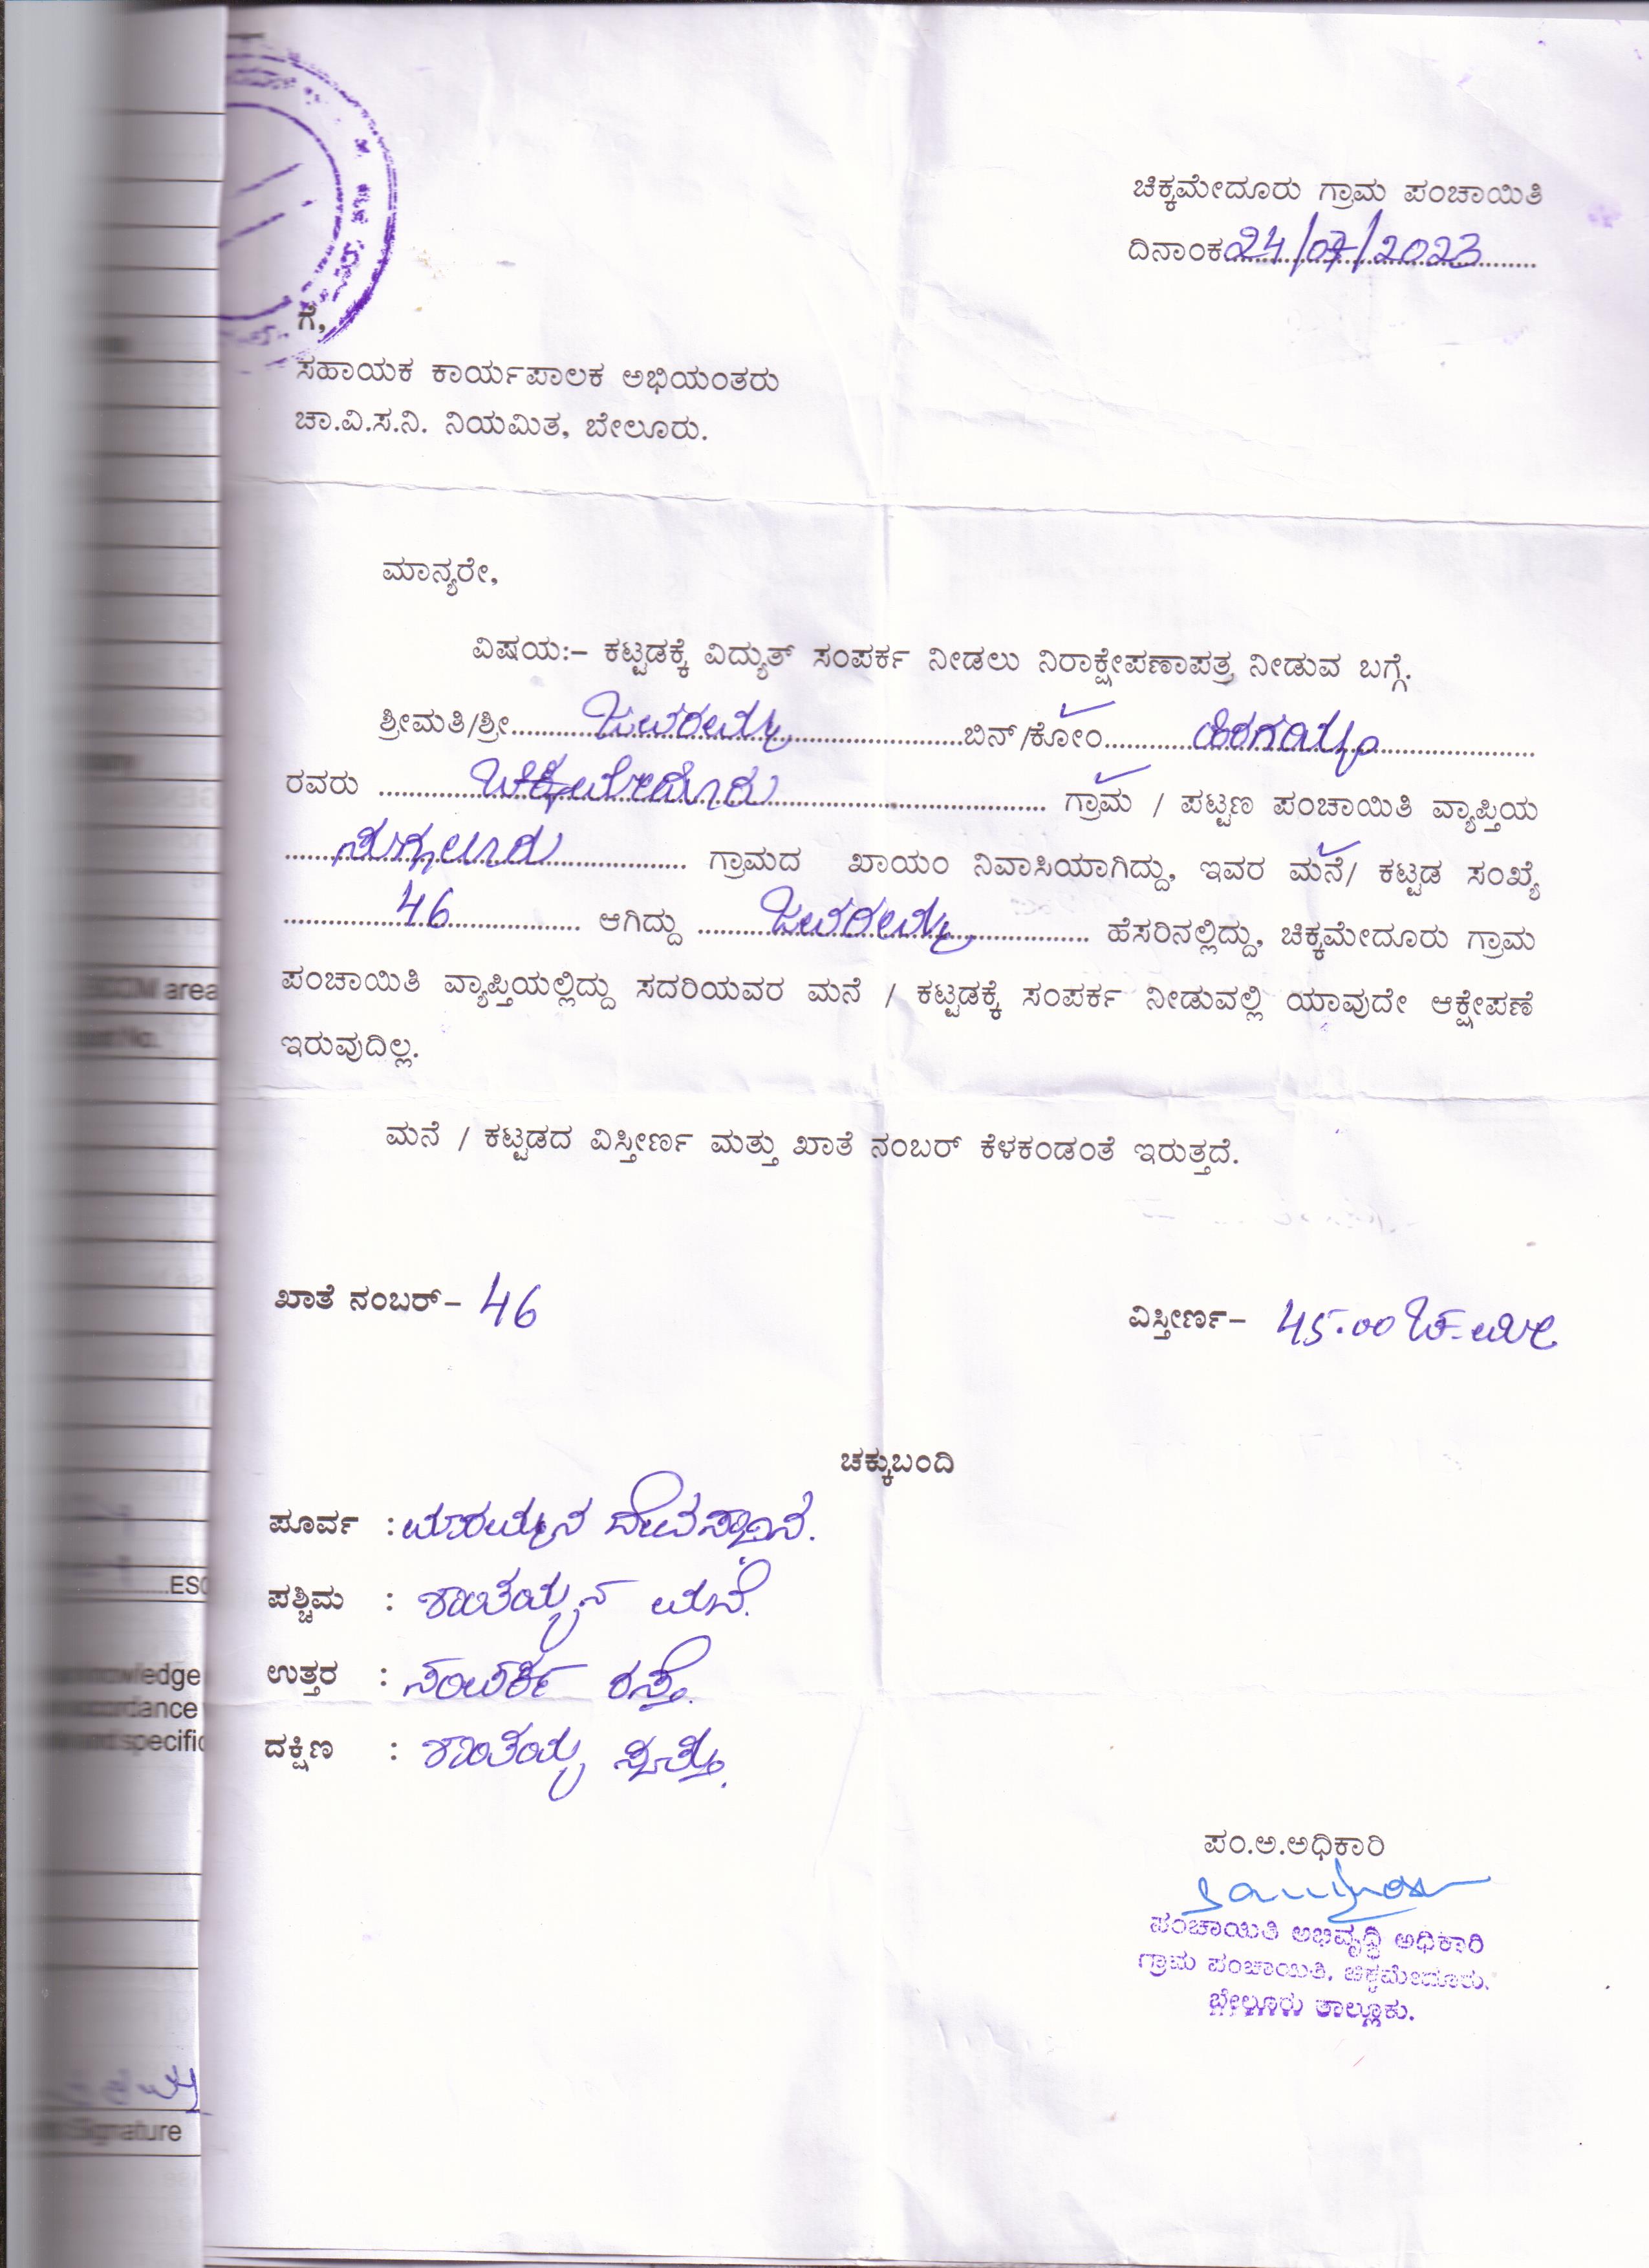 ಚಿಕ್ಕಮೇದೂರು ಗ್ರಾಮ ಪಂಚಾಯಿತಿ
ದಿನಾಂಕ 24/07/2023
ಗೆ,
ಸಹಾಯಕ ಕಾರ್ಯಪಾಲಕ ಅಭಿಯಂತರು
ಚಾ.ವಿ.ಸ.ನಿ. ನಿಯಮಿತ, ಬೇಲೂರು.
ಮಾನ್ಯರೇ,
ವಿಷಯ:– ಕಟ್ಟಡಕ್ಕೆ ವಿದ್ಯುತ್ ಸಂಪರ್ಕ ನೀಡಲು ನಿರಾಕ್ಷೇಪಣಾಪತ್ರ ನೀಡುವ ಬಗ್ಗೆ.
ಶ್ರೀಮತಿ/ಶ್ರೀ ಜವರಮ್ಮ ಬಿನ್/ಕೋಂ
ರವರು ಚಿಕ್ಕಮೇದೂರು ಗ್ರಾಮ / ಪಟ್ಟಣ ಪಂಚಾಯಿತಿ ವ್ಯಾಪ್ತಿಯ
ಗ್ರಾಮದ ಖಾಯಂ ನಿವಾಸಿಯಾಗಿದ್ದು, ಇವರ ಮನೆ/ ಕಟ್ಟಡ ಸಂಖ್ಯೆ
46 ಆಗಿದ್ದು ಜವರಮ್ಮ ಹೆಸರಿನಲ್ಲಿದ್ದು, ಚಿಕ್ಕಮೇದೂರು ಗ್ರಾಮ
ಪಂಚಾಯಿತಿ ವ್ಯಾಪ್ತಿಯಲ್ಲಿದ್ದು ಸದರಿಯವರ ಮನೆ / ಕಟ್ಟಡಕ್ಕೆ ಸಂಪರ್ಕ ನೀಡುವಲ್ಲಿ ಯಾವುದೇ ಆಕ್ಷೇಪಣೆ
ಇರುವುದಿಲ್ಲ.
ಮನೆ / ಕಟ್ಟಡದ ವಿಸ್ತೀರ್ಣ ಮತ್ತು ಖಾತೆ ನಂಬರ್ ಕೆಳಕಂಡಂತೆ ಇರುತ್ತದೆ.
ಖಾತೆ ನಂಬರ್– 46
ವಿಸ್ತೀರ್ಣ– 45.00 ಚ.ಮೀ
ಚಕ್ಕುಬಂದಿ
ಪೂರ್ವ : ಮಾರಮ್ಮನ ದೇವಸ್ಥಾನ.
ಪಶ್ಚಿಮ : ಶಾಂತಮ್ಮನ ಮನೆ.
ಉತ್ತರ : ಸಂಪರ್ಕ ರಸ್ತೆ.
ದಕ್ಷಿಣ : ಶಾಂತಮ್ಮ ಸ್ವತ್ತು.
ಪಂ.ಅ.ಅಧಿಕಾರಿ
ಪಂಚಾಯಿತಿ ಅಭಿವೃದ್ಧಿ ಅಧಿಕಾರಿ
ಗ್ರಾಮ ಪಂಚಾಯಿತಿ, ಚಿಕ್ಕಮೇದೂರು.
ಬೇಲೂರು ತಾಲ್ಲೂಕು.
area
No.
ESC
knowledge
cordance
and specific
Signature